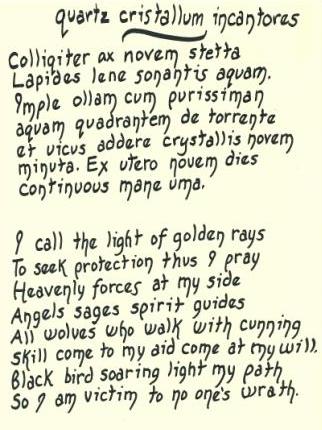 quartz cristallum incantores
Colligiter ax novem stetta
Lapides lene sonantis aquam.
Imple ollam cum purissiman
aquam quadrantem de torrente
et vicus addere crystallis novem
minuta. Ex utero novem dies
continuous mane uma.
I call the light of golden rays
To seek protection thus I pray
Heavenly forces at my side
Angels sages spirit guides
All wolves who walk with cunning
skill come to my aid come at my will.
Black bird soaring light my path
So I am victim to no one's wrath.